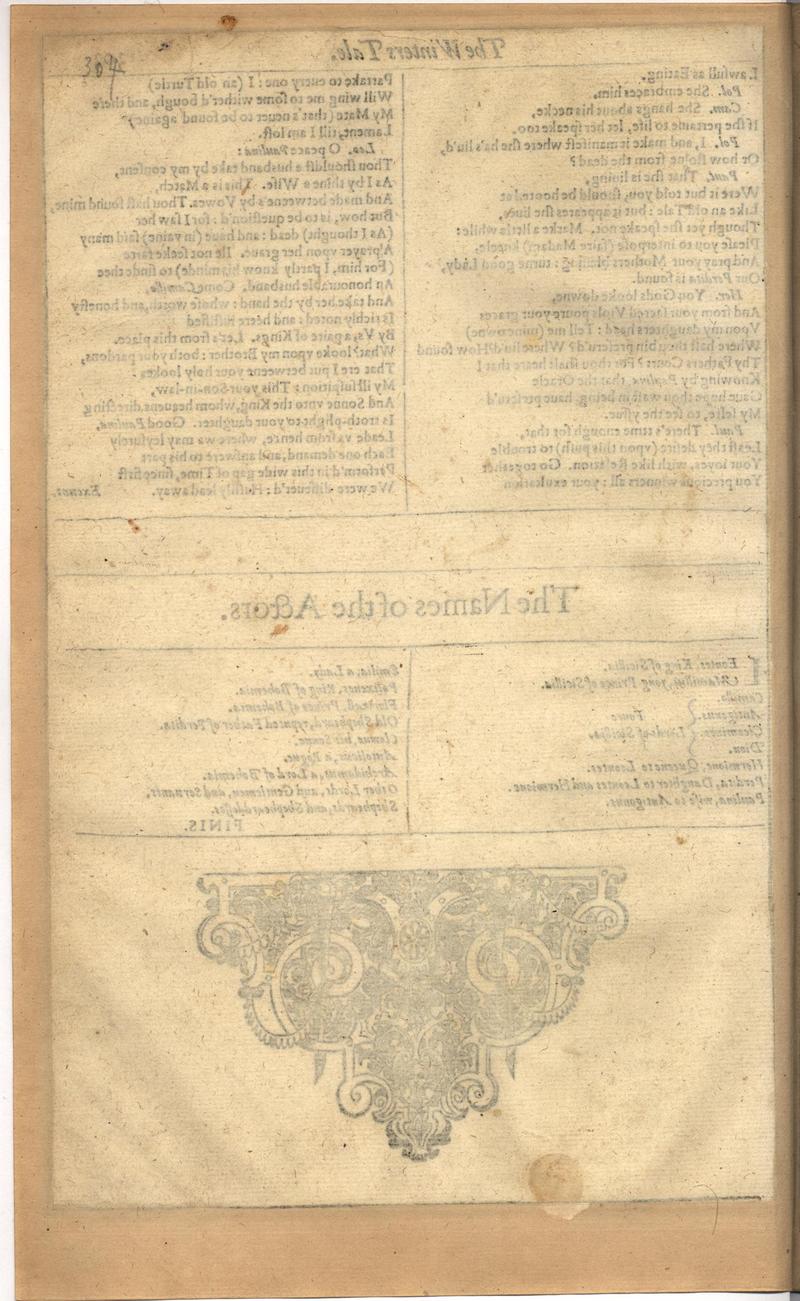 304
The Winters Tale.
Lawfull as Eating.
Pol. She embraces him.
Cam. She hangs about his necke,
If she pertaine to life, let her speake too.
Pol. I, and make it manifest where she ha's liu'd,
Or how stolne from the dead?
Paul. That she is liuing,
Were it but told you, should be hooted at
Like an old Tale: but it appeares she liues,
Though yet she speake not. Marke a little while:
Please you to interpose (faire Madam) kneele,
And pray your Mothers blessing: turne good Lady,
Our Perdita is found.
Her. You Gods looke downe,
And from your sacred Viols poure your graces
Vpon my daughters head: Tell me (mine owne)
Where hast thou bin preseru'd? Where liu'd? How found
Thy Fathers Court? For thou shalt heare that I
Knowing by Paulina, that the Oracle
Gaue hope thou wast in being, haue preseru'd
My selfe, to see the yssue.
Paul. There's time enough for that,
Least they desire (vpon this push) to trouble
Your ioyes, with like Relation. Go together
You precious winners all: your exultation
Partake to euery one: I (an old Turtle)
Will wing me to some wither'd bough, and there
My Mate (that's neuer to be found againe)
Lament, till I am lost.
Leo. O peace Paulina:
Thou shouldst a husband take by my consent,
As I by thine a Wife. This is a Match,
And made betweene's by Vowes. Thou hast found mine,
But how, is to be question'd: for I saw her
(As I thought) dead: and haue (in vaine) said many
A prayer vpon her graue. Ile not seeke farre
(For him, I partly know his minde) to finde thee
An honourable husband. Come Camillo,
And take her by the hand: whose worth, and honesty
Is richly noted: and heere iustified
By Vs, a paire of Kings. Let's from this place.
What? looke vpon my Brother: both your pardons,
That ere I put betweene your holy lookes
My ill suspition: This your Son-in-law,
And Sonne vnto the King, whom heauens directing
Is troth-plight to your daughter. Good Paulina,
Leade vs from hence, where we may leysurely
Each one demand, and answere to his part
Perform'd in this wide gap of Time, since first
We were disseuer'd: Hastily lead away. Exeunt.
The Names of the Actors.
LEontes, King of Sicillia.
Mamillus, yong Prince of Sicillia.
Camillo.
Antigonus. Foure
Cleomines. Lords of Sicillia.
Dion.
Hermione, Queene to Leontes.
Perdita, Daughter to Leontes and Hermione.
Paulina, wife to Antigonus.
Emilia, a Lady.
Polixenes, King of Bohemia.
Florizell, Prince of Bohemia.
Old Shepheard, reputed Father of Perdita.
Clowne, his Sonne.
Autolicus, a Rogue.
Archidamus, a Lord of Bohemia.
Other Lords, and Gentlemen, and Seruants.
Shepheards, and Shephearddesses.
FINIS.